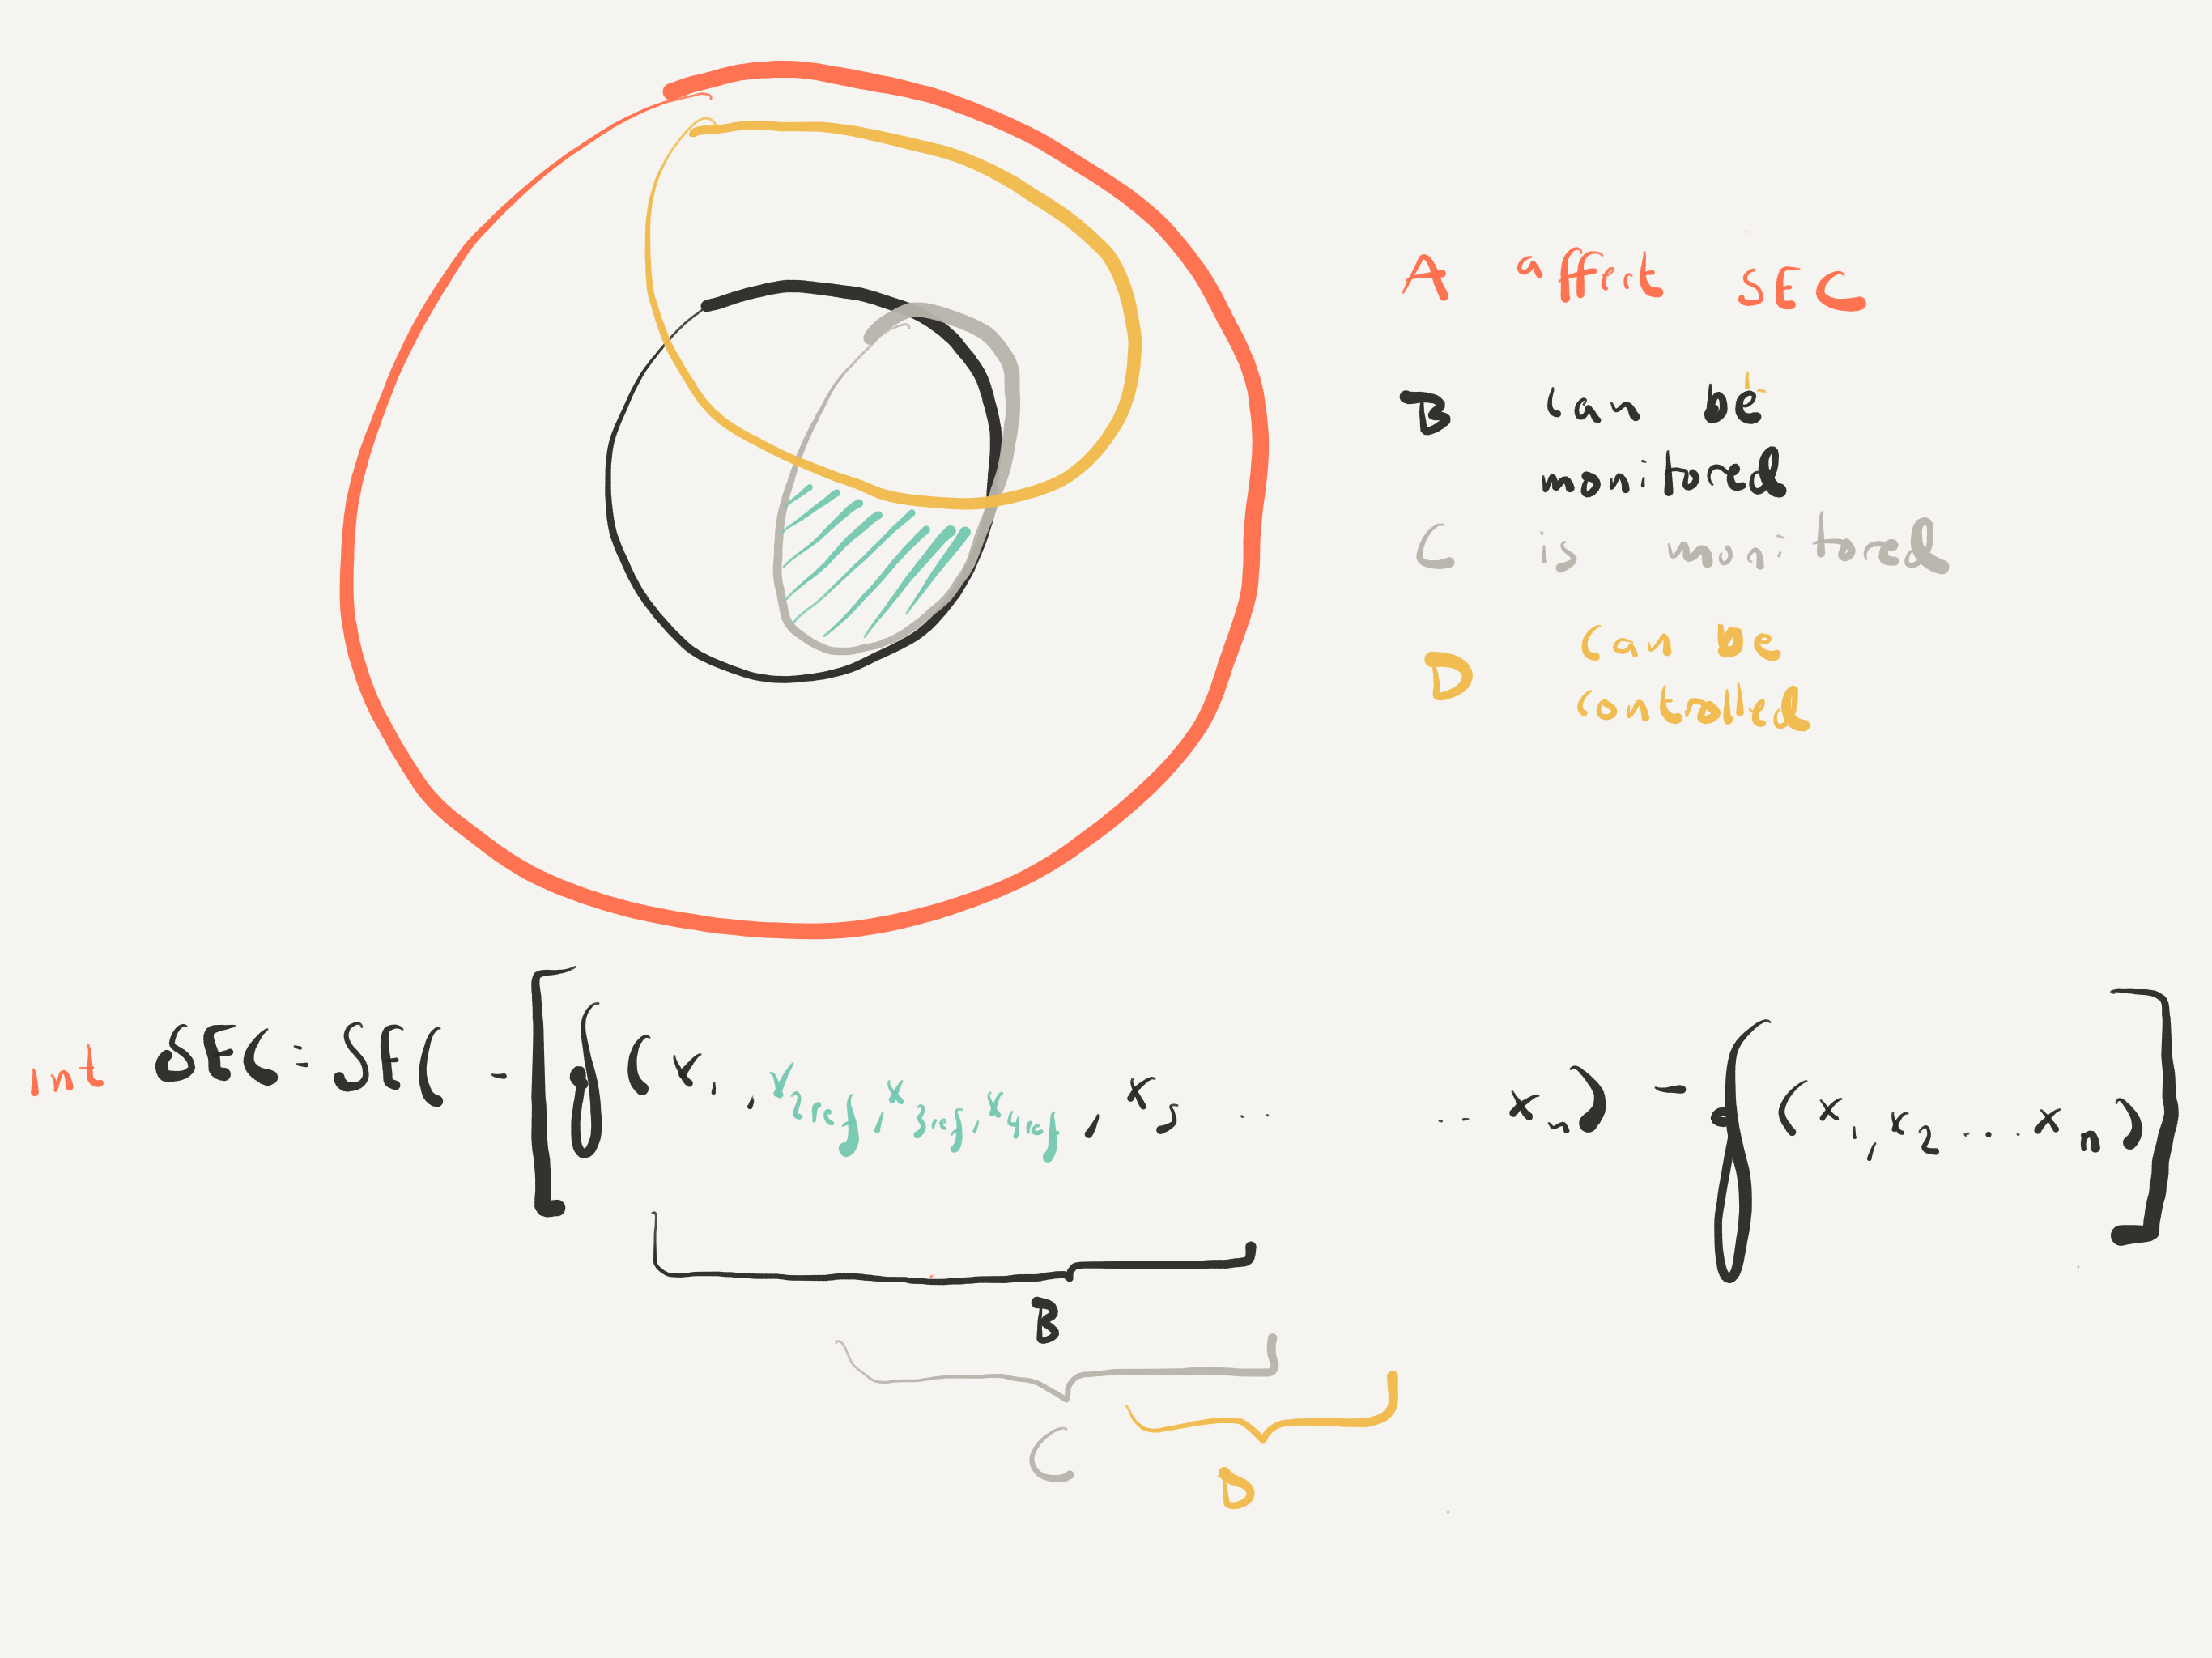 A affect SEC
B can be
monitored
C is monitored
D can be
controlled
int SEC = SFC - [f(x1, x2ref, x3ref, x4ref, x5 .. .. xn) - f(x1, x2 .... xn)]
B
C
D